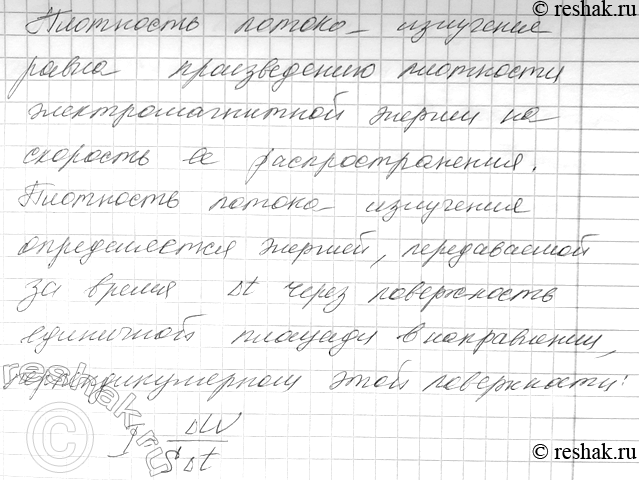 © reshak.ru
Плотность потока излучения
равна произведению плотности
электромагнитной энергии на
скорость ее распространения.
Плотность потока излучения
определяется энергией, передаваемой
за время Δt через поверхность
единичной площади в направлении,
перпендикулярном этой поверхности:
J = ΔW / S Δt
reshak.ru
©
© reshak.ru